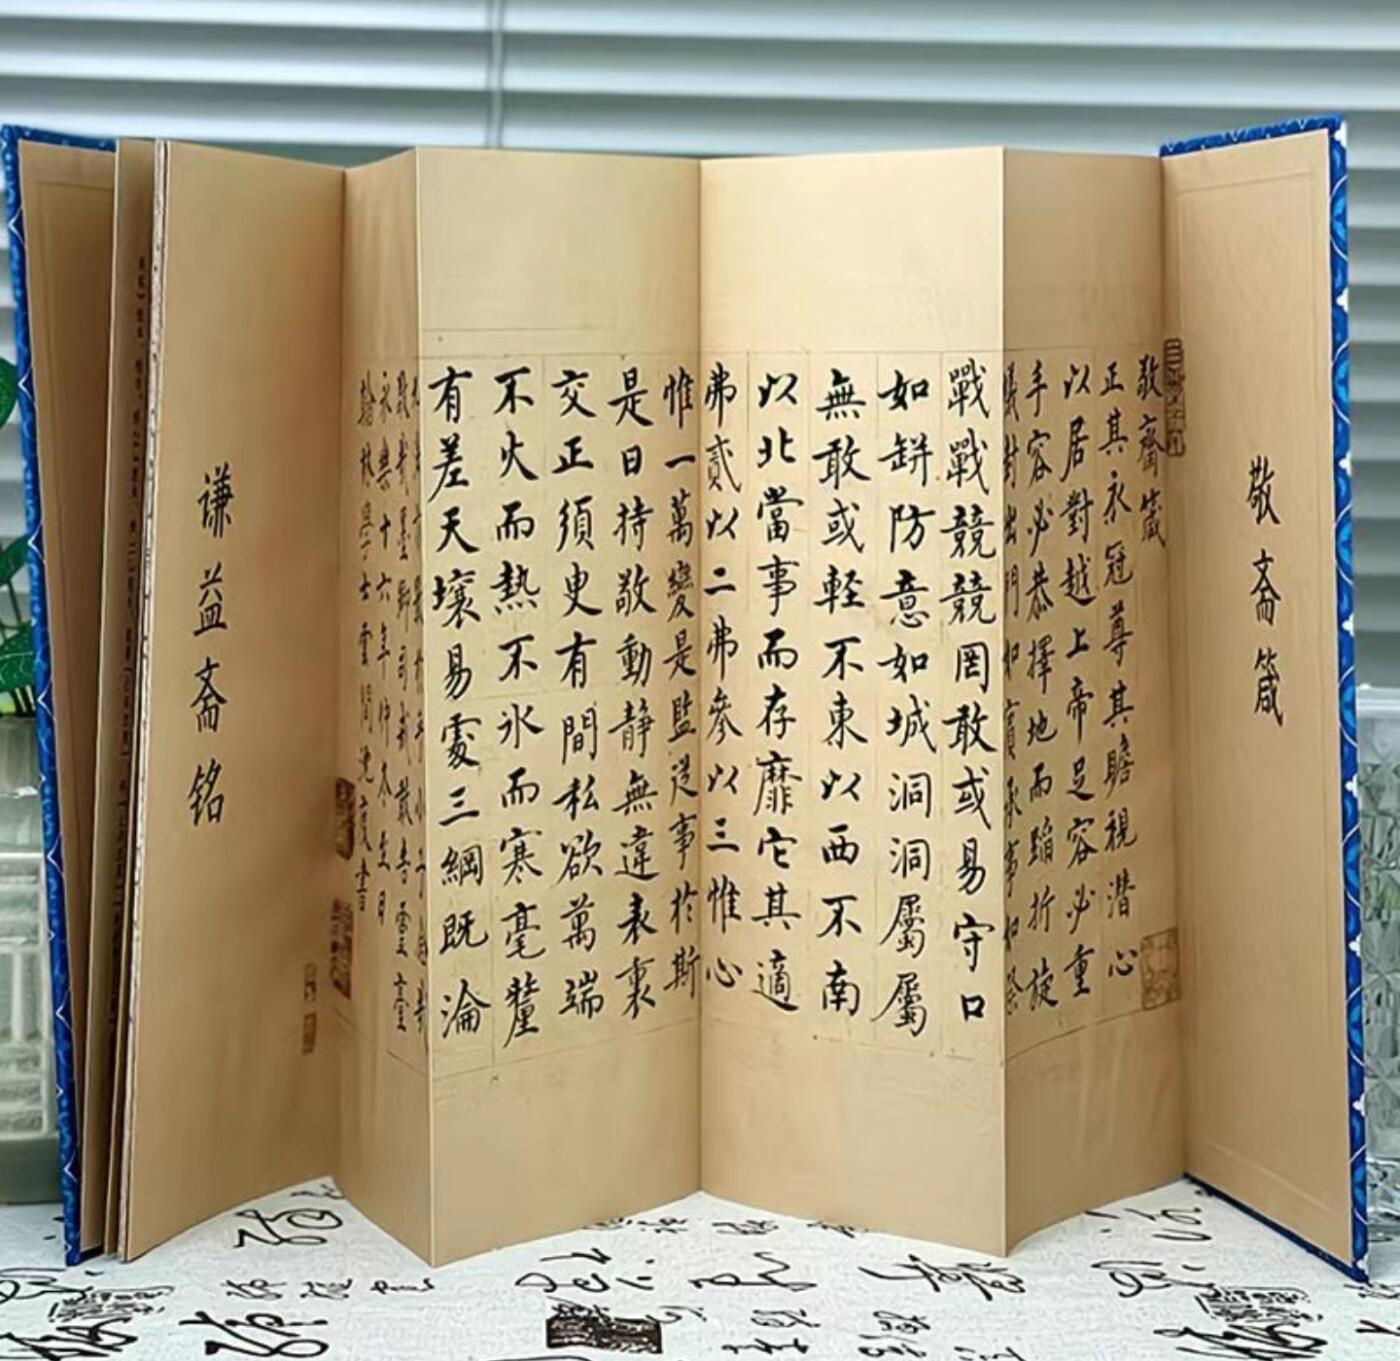 敬斋箴
敬齋箴
正其衣冠尊其瞻視潛心
以居對越上帝足容必重
手容必恭擇地而蹈折旋
蟻封出門如賓承事如祭
戰戰競競罔敢或易守口
如缾防意如城洞洞屬屬
無敢或輕不東以西不南
以北當事而存靡它其適
弗貳以二弗參以三惟心
惟一萬變是監從事於斯
是曰持敬動靜無違表裏
交正須臾有間私欲萬端
不火而熱不冰而寒毫釐
有差天壤易處三綱既淪
於乎小子念哉
敬哉墨卿司戒敢告靈臺
永樂十六年仲冬至日
翰林學士雲間沈度書
谦益斋铭